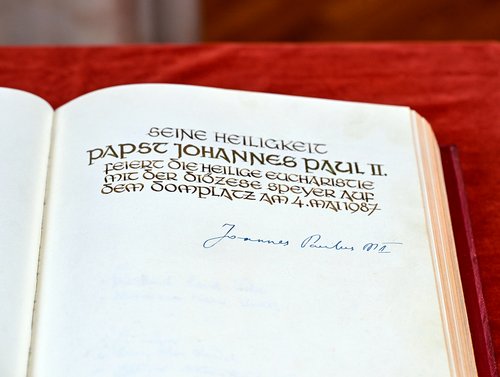 SEINE HEILIGKEIT
PAPST JOHANNES PAUL II.
FEIERT DIE HEILIGE EUCHARISTIE
MIT DER DIÖZESE SPEYER AUF
DEM DOMPLATZ AM 4. MAI 1987
Joannes Paulus PP II